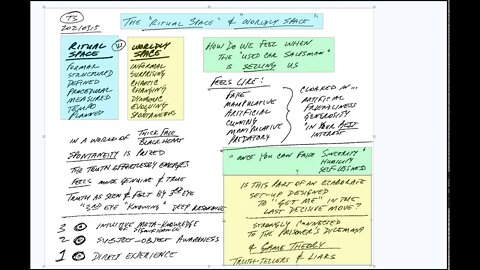 T3
2021/03/5
THE "RITUAL SPACE" & "WORLDLY SPACE"
RITUAL SPACE
FORMAL
STRUCTURED
DEFINED
PROCEDURAL
MEASURED
TEMPO
PLANNED
WORLDLY SPACE
INFORMAL
SURPRISING
CHAOTIC
CHANGING
DYNAMIC
EVOLVING
SPONTANEOUS
HOW DO WE FEEL WHEN
THE "USED CAR SALESMAN"
IS SELLING US
FEELS LIKE:
FAKE
MANIPULATIVE
ARTIFICIAL
CUNNING
MANIPULATIVE
PREDATORY
CLOAKED IN...
ARTIFICIAL
FRIENDLINESS
GENEROSITY
IN YOUR BEST
INTEREST
IN A WORLD OF THICK FACE
BLACK HEART
SPONTANEITY IS PRIZED
THE TRUTH EFFORTLESSLY EMERGES
FEELS MORE GENUINE & TRUE
TRUTH AS SEEN & FELT BY 3RD EYE
"3RD EYE KNOWING" DEEP RESONANCE
3 INTUITIVE META-KNOWLEDGE
2 SUBJECT-OBJECT AWARENESS
1 DIRECT EXPERIENCE
"ONCE YOU CAN FAKE SINCERITY"
HUMILITY
SELFLESSNESS
IS THIS PART OF AN ELABORATE
SET-UP DESIGNED
TO "GET ME" IN THE
LAST DECISIVE MOVE?
STRONGLY CONNECTED
TO THE PRISONER'S DILEMMA
& GAME THEORY
TRUTH-TELLERS & LIARS